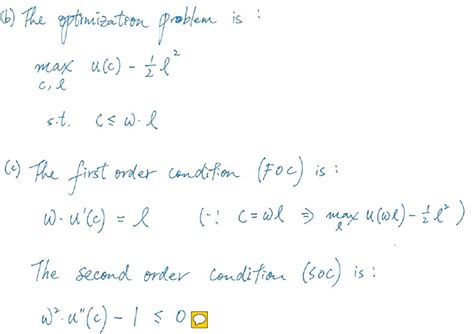 (b) The optimization problem is :
max u(c) - 1/2 l²
c, l
s.t. c ≤ w·l
(c) The first order condition (FOC) is :
w·u'(c) = l (∵ c=wl ⇒ max u(wl) - 1/2 l²)
l
The second order condition (SOC) is :
w²·u''(c) - 1 ≤ 0